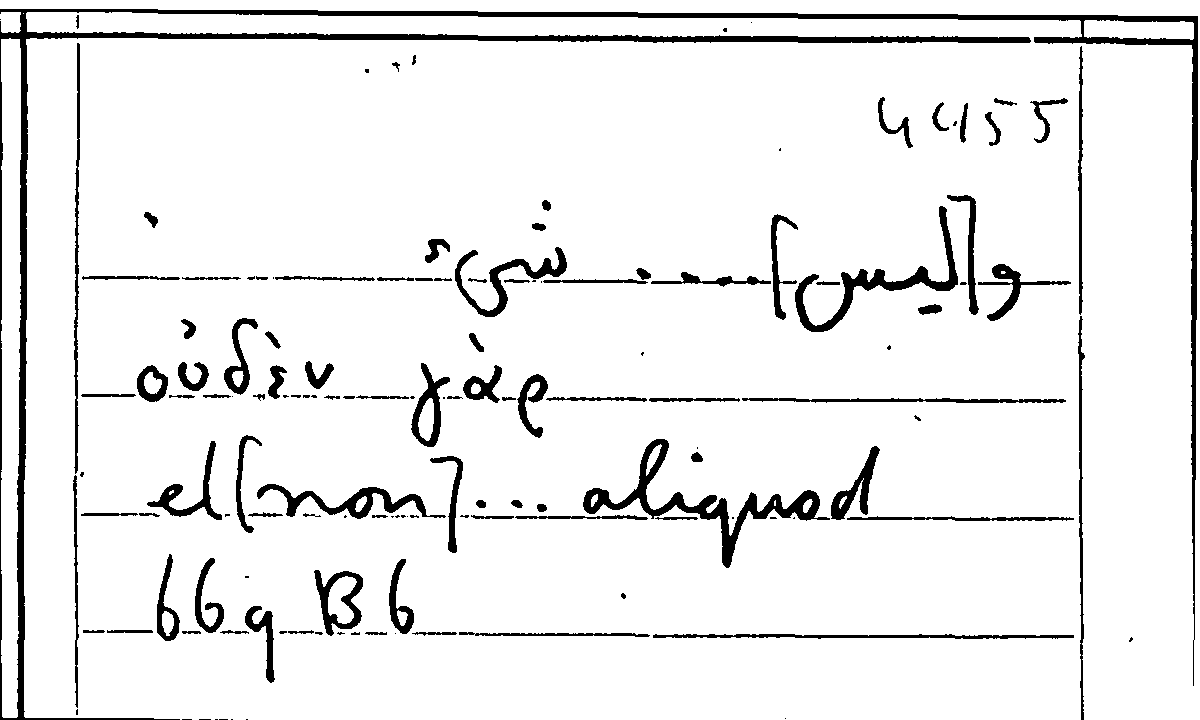 4455
و[ليس] .... شىء
οὐδὲν γὰρ
et [non] ... aliquod
669 B6